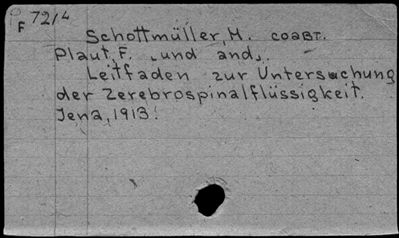 F 72/4
Schottmüller, H. соавт.
Plaut, F. „und and„.
Leitfaden zur Untersuchung
der Zerebrospinalflüssigkeit.
Jena, 1913.